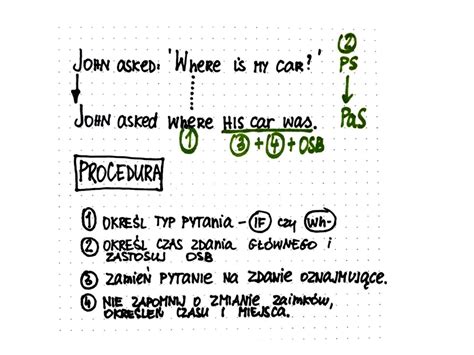 JOHN ASKED: 'WHERE IS MY CAR?' ② PS
JOHN ASKED WHERE HIS CAR WAS. PaS
① ③ + ④ + OSB
PROCEDURA
① OKREŚL TYP PYTANIA - IF CZY Wh-
② OKREŚL CZAS ZDANIA GŁÓWNEGO I
ZASTOSUJ OSB
③ ZAMIEŃ PYTANIE NA ZDANIE OZNAJMUJĄCE.
④ NIE ZAPOMNIJ O ZMIANIE ZAIMKÓW,
OKREŚLEŃ CZASU I MIEJSCA.